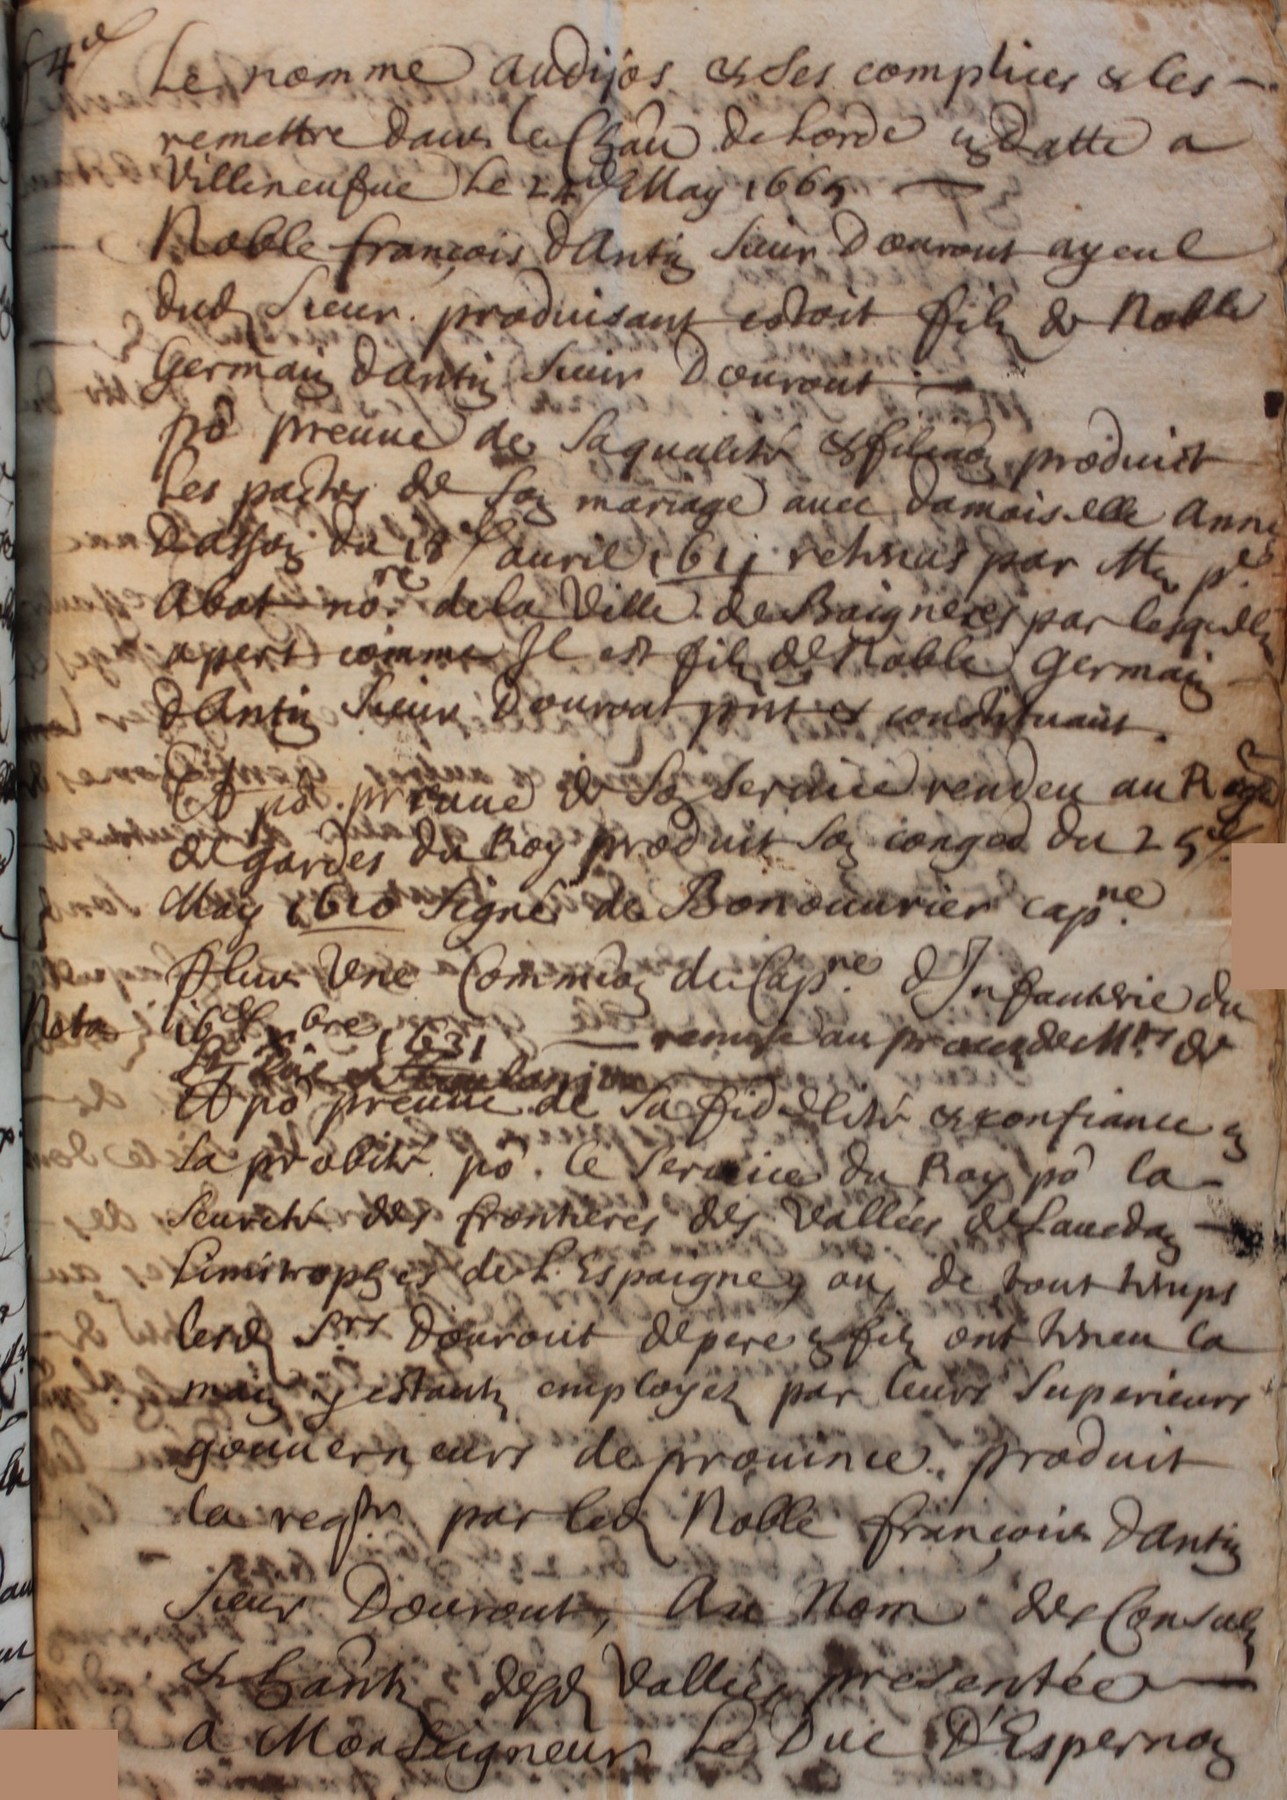 4e
Le nomme audijos & ses complices & les
remettre dans le Chau de Lorde en datte a
Villeneufue le 24e May 1665
Noble françois dAntin Sieur Dourout ayeul
dud Sieur produisant estoit fils de Noble
Germain dantin Sieur Dourout
po preuue de sa qualité & filiaon produict
Les pactes de son mariage auec damoiselle Anne
Dasson du 18e auril 1611 retenus par Me pre
Abat nore de la Ville de Baigneres par lesquelz
apert comme Il est filz de Noble Germain
dAntin Sieur Dourout pnt & constituant.
Et po preuue de son Seruice rendeu au Regt
de gardes du Roy produit son conged du 25e
May 1610 Signé de Bonouurier capne
Plus Une Commion de Capne d'Infanterie du
Nota 16e xbre 1631 remise au proces de Mrs de
Et po preuue de sa fidelité & confiance en
sa probité po le seruice du Roy po la
seureté des frontieres des Vallées de Lauedan
limitrophes de L'Espaigne, ou de tout temps
lesd Srs Dourout de pere en filz ont teneu la
main y estantz employez par leurs Superieurs
gouuerneurs de prouince produit
la reqte par led Noble françois dantin
Sieur Dourout, Au Nom des Consulz
& hantz desd Vallées presentée
a Monseigneur Le Duc D'Espernon